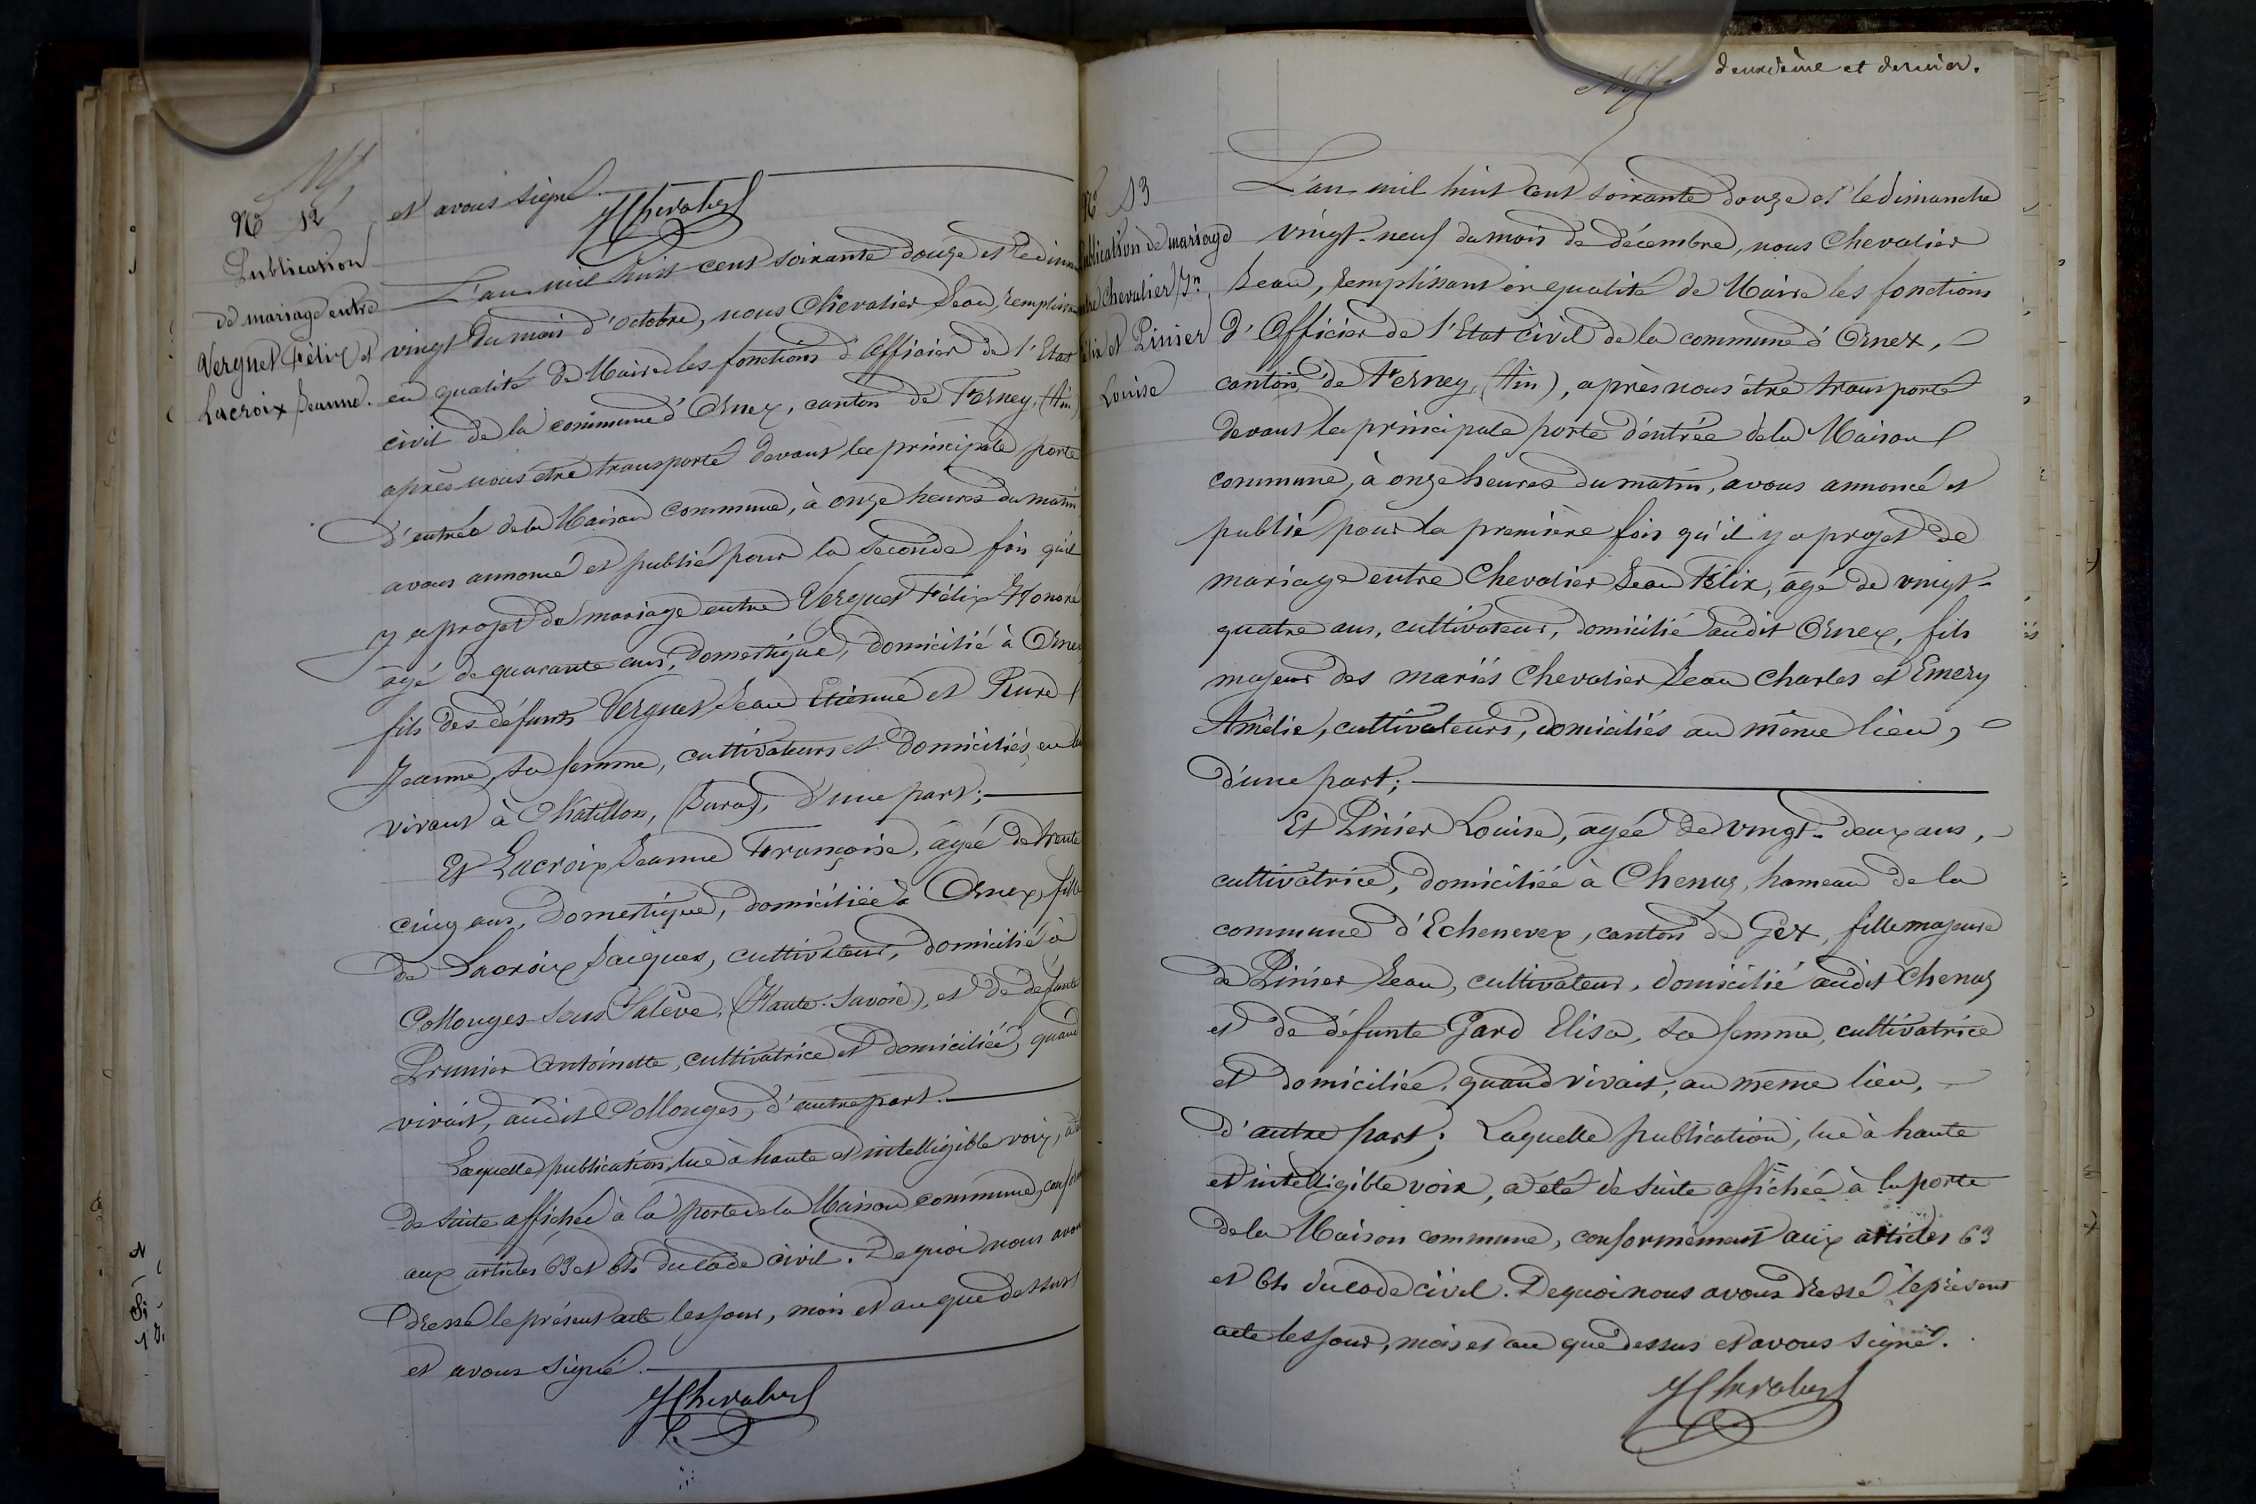 et avons signé.
JChevalier
Nº 12
Publication
de mariage entre
Verguet Félix et
Lacroix Jeanne.
L'an mil huit cent soixante douze et le diman
vingt du mois d'octobre, nous Chevalier Jean, remplissant
en qualité de Maire les fonctions d'Officier de l'Etat
civil de la commune d'Ornex, canton de Ferney, (Ain)
après nous être transporté devant la principale porte
d'entrée de la Maison commune, à onze heures du matin
avons annoncé et publié pour la seconde fois qu'il
y a projet de mariage entre Verguet Félix Honoré
âgé de quarante ans, domestique, domicilié à Ornex,
fils des défunts Verguet Jean Etienne et
Jeanne, sa femme, cultivateurs et domiciliés, en leur
vivant à Chatillon, (Jura), d'une part;
Et Lacroix Jeanne Françoise, âgée de trente
cinq ans, domestique, domiciliée à Ornex, fille
de Lacroix Jacques, cultivateur, domicilié à
Collonges-sous Salève, (Haute-Savoie), et de défunte
Prunier Antoinette, cultivatrice et domiciliée, quand
vivait, audit Collonges, d'autre part.
Laquelle publication, lue à haute et intelligible voix, a été
de suite affichée à la porte de la Maison commune, conform
aux articles 63 et 64 du code civil. De quoi nous avons
dressé le présent acte les jour, mois et an que dessus
et avons signé.
JChevalier
deuxième et dernier.
Nº 13
Publication de mariage
entre Chevalier Jn
Félix et Pinier
Louise
L'an mil huit cent soixante douze et le dimanche
vingt-neuf du mois de décembre, nous Chevalier
Jean, remplissant en qualité de Maire les fonctions
d'Officier de l'Etat civil de la commune d'Ornex,
canton de Ferney, (Ain), après nous être transporté
devant la principale porte d'entrée de la Maison
commune, à onze heures du matin, avons annoncé et
publié pour la première fois qu'il y a projet de
mariage entre Chevalier Jean Félix, âgé de vingt-
quatre ans, cultivateur, domicilié audit Ornex, fils
majeur des mariés Chevalier Jean Charles et Emery
Amélie, cultivateurs, domiciliés au même lieu,
d'une part;
Et Pinier Louise, âgée de vingt-deux ans,
cultivatrice, domiciliée à Chenaz, hameau de la
commune d'Echenevex, canton de Gex, fille majeure
de Pinier Jean, cultivateur, domicilié audit Chenaz
et de défunte Gard Elisa, sa femme, cultivatrice
et domiciliée, quand vivait, au même lieu,
d'autre part; Laquelle publication, lue à haute
et intelligible voix, a été de suite affichée à la porte
de la Maison commune, conformément aux articles 63
et 64 du code civil. De quoi nous avons dressé le présent
acte les jour, mois et an que dessus et avons signé.
JChevalier